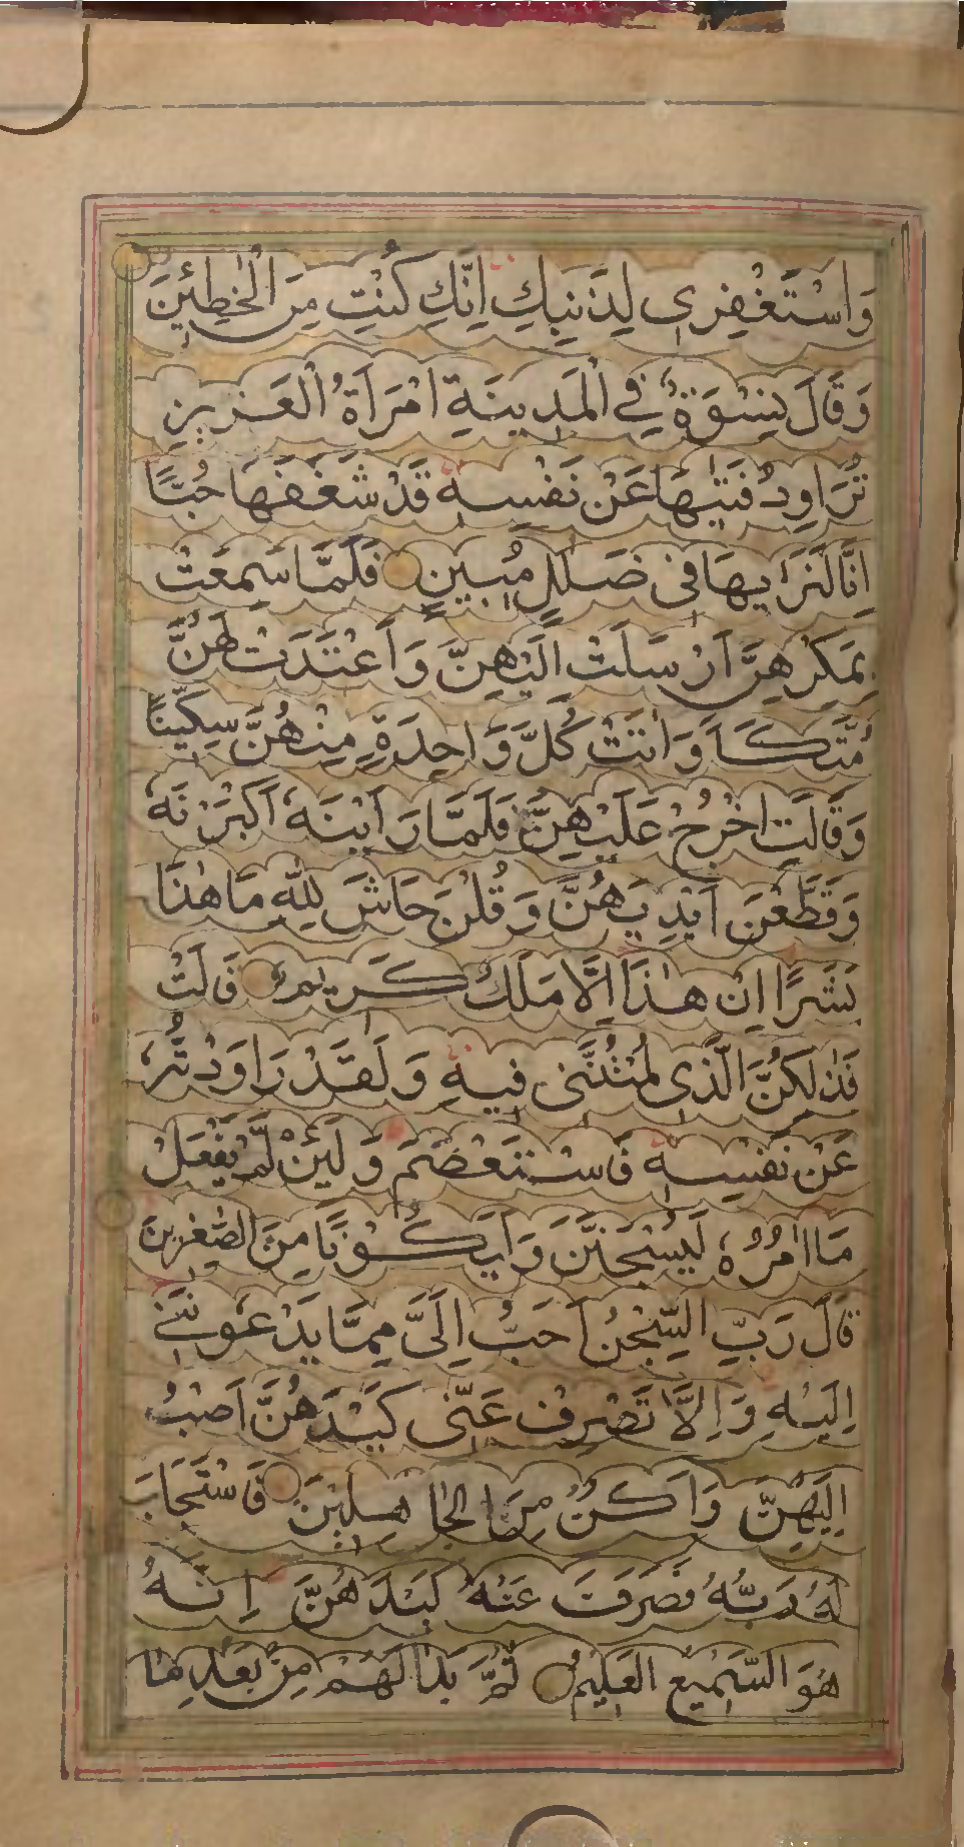 وَاسْتَغْفِرِی لِذَنْبِكِ اِنَّكِ كُنْتِ مِنَ الْخٰطِئِینَ
وَقَالَ نِسْوَةٌ فِی الْمَدِینَةِ امْرَاَةُ الْعَزِیزِ
تُرَاوِدُ فَتٰیهَا عَنْ نَفْسِهٖ قَدْ شَغَفَهَا حُبًّا
اِنَّا لَنَرٰیهَا فِی ضَلَالٍ مُبِینٍ فَلَمَّا سَمِعَتْ
بِمَكْرِهِنَّ اَرْسَلَتْ اِلَیْهِنَّ وَاَعْتَدَتْ لَهُنَّ
مُتَّكَاً وَاٰتَتْ كُلَّ وَاحِدَةٍ مِنْهُنَّ سِكِّینًا
وَقَالَتِ اخْرُجْ عَلَیْهِنَّ فَلَمَّا رَاَیْنَهٗ اَكْبَرْنَهٗ
وَقَطَّعْنَ اَیْدِیَهُنَّ وَقُلْنَ حَاشَ لِلّٰهِ مَا هٰذَا
بَشَرًا اِنْ هٰذَا اِلَّا مَلَكٌ كَرِیمٌ قَالَتْ
فَذٰلِكُنَّ الَّذِی لُمْتُنَّنِی فِیهِ وَلَقَدْ رَاوَدْتُهٗ
عَنْ نَفْسِهٖ فَاسْتَعْصَمَ وَلَئِنْ لَمْ یَفْعَلْ
مَا اٰمُرُهٗ لَیُسْجَنَنَّ وَلَیَكُونًا مِنَ الصّٰغِرِینَ
قَالَ رَبِّ السِّجْنُ اَحَبُّ اِلَیَّ مِمَّا یَدْعُونَنِی
اِلَیْهِ وَاِلَّا تَصْرِفْ عَنِّی كَیْدَهُنَّ اَصْبُ
اِلَیْهِنَّ وَاَكُنْ مِنَ الْجَاهِلِینَ فَاسْتَجَابَ
لَهُ رَبُّهُ فَصَرَفَ عَنْهُ كَیْدَهُنَّ اِنَّهُ
هُوَ السَّمِیعُ الْعَلِیمُ ثُمَّ بَدَا لَهُمْ مِنْ بَعْدِ مَا